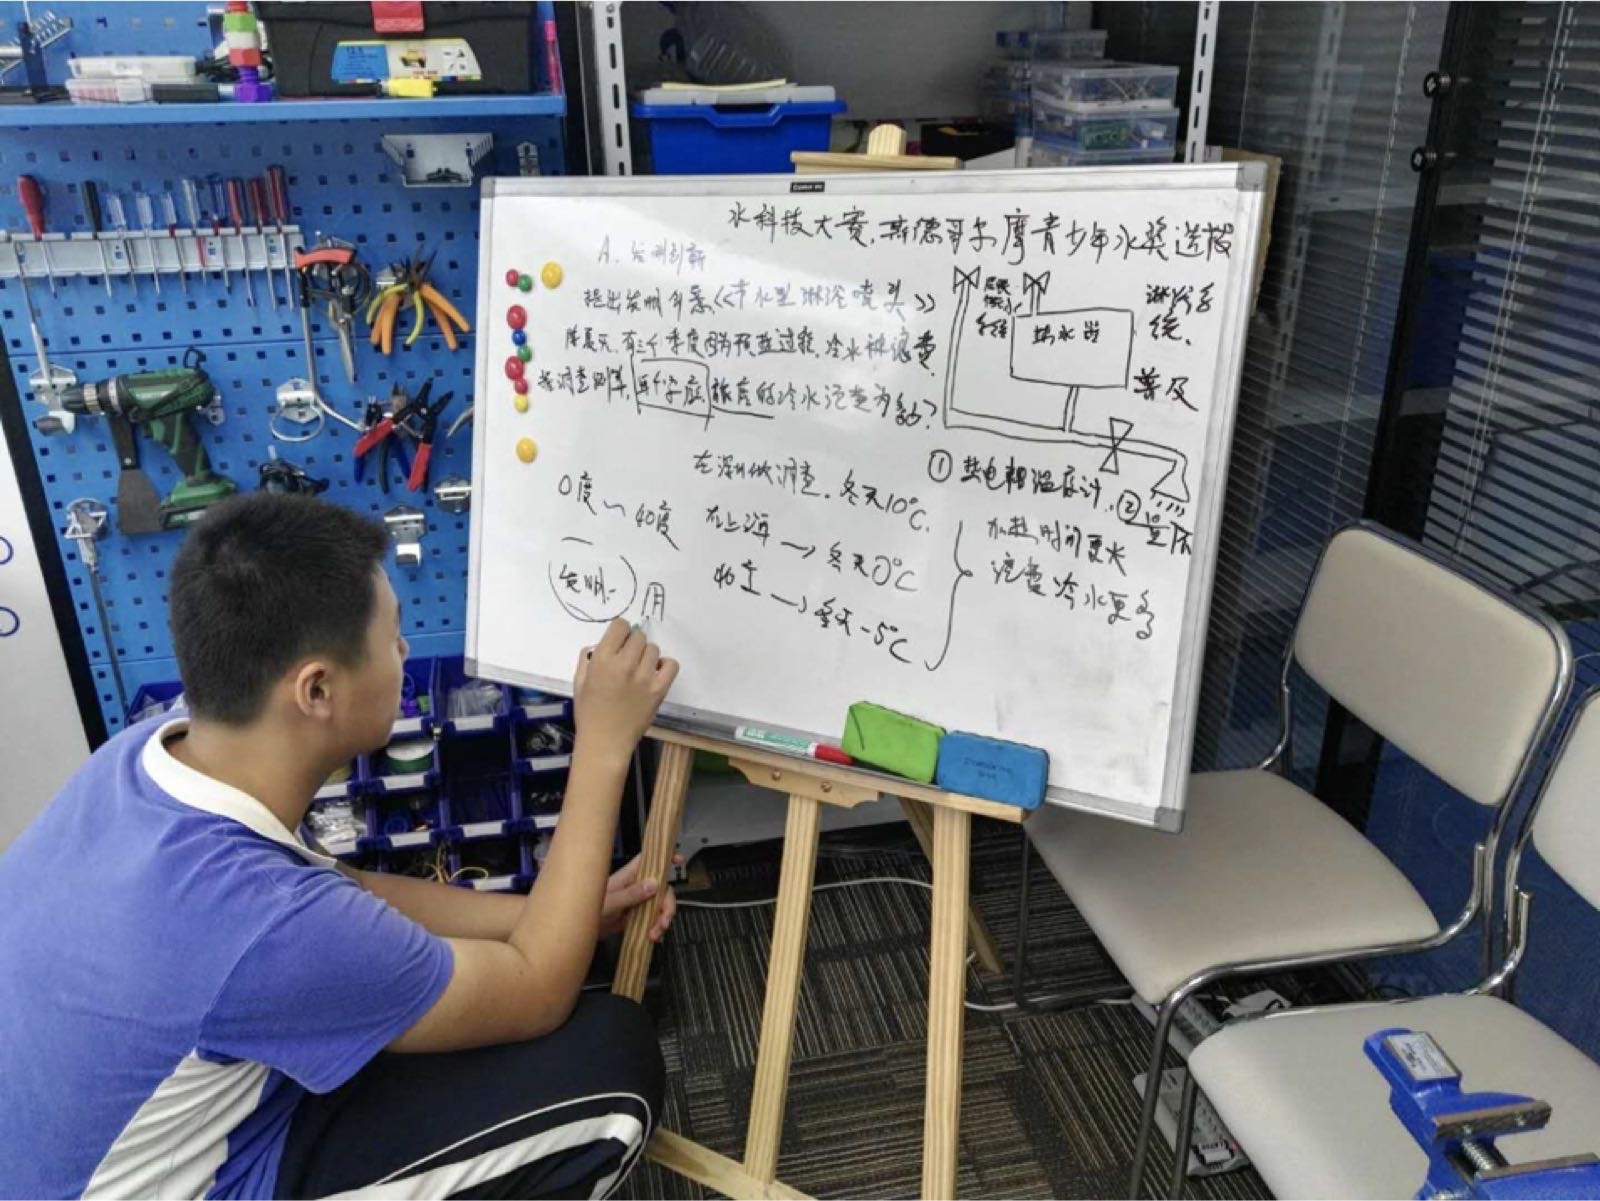 水科技大赛.斯德哥尔摩青少年水奖选拔
A.发明创新
提出发明方案《节水型淋浴喷头》
除夏天,有三个季度因为预热过程,冷水被浪费
按调查测算,每个家庭 能应的冷水流空为多少?
热水器
淋浴系统.
普及
①热电耦温度计.②
在深圳做调查.冬天10℃.
0度~40度
在上海→冬天0℃
→冬天-5℃
加热时间更长
流量冷水更多
发明.
用